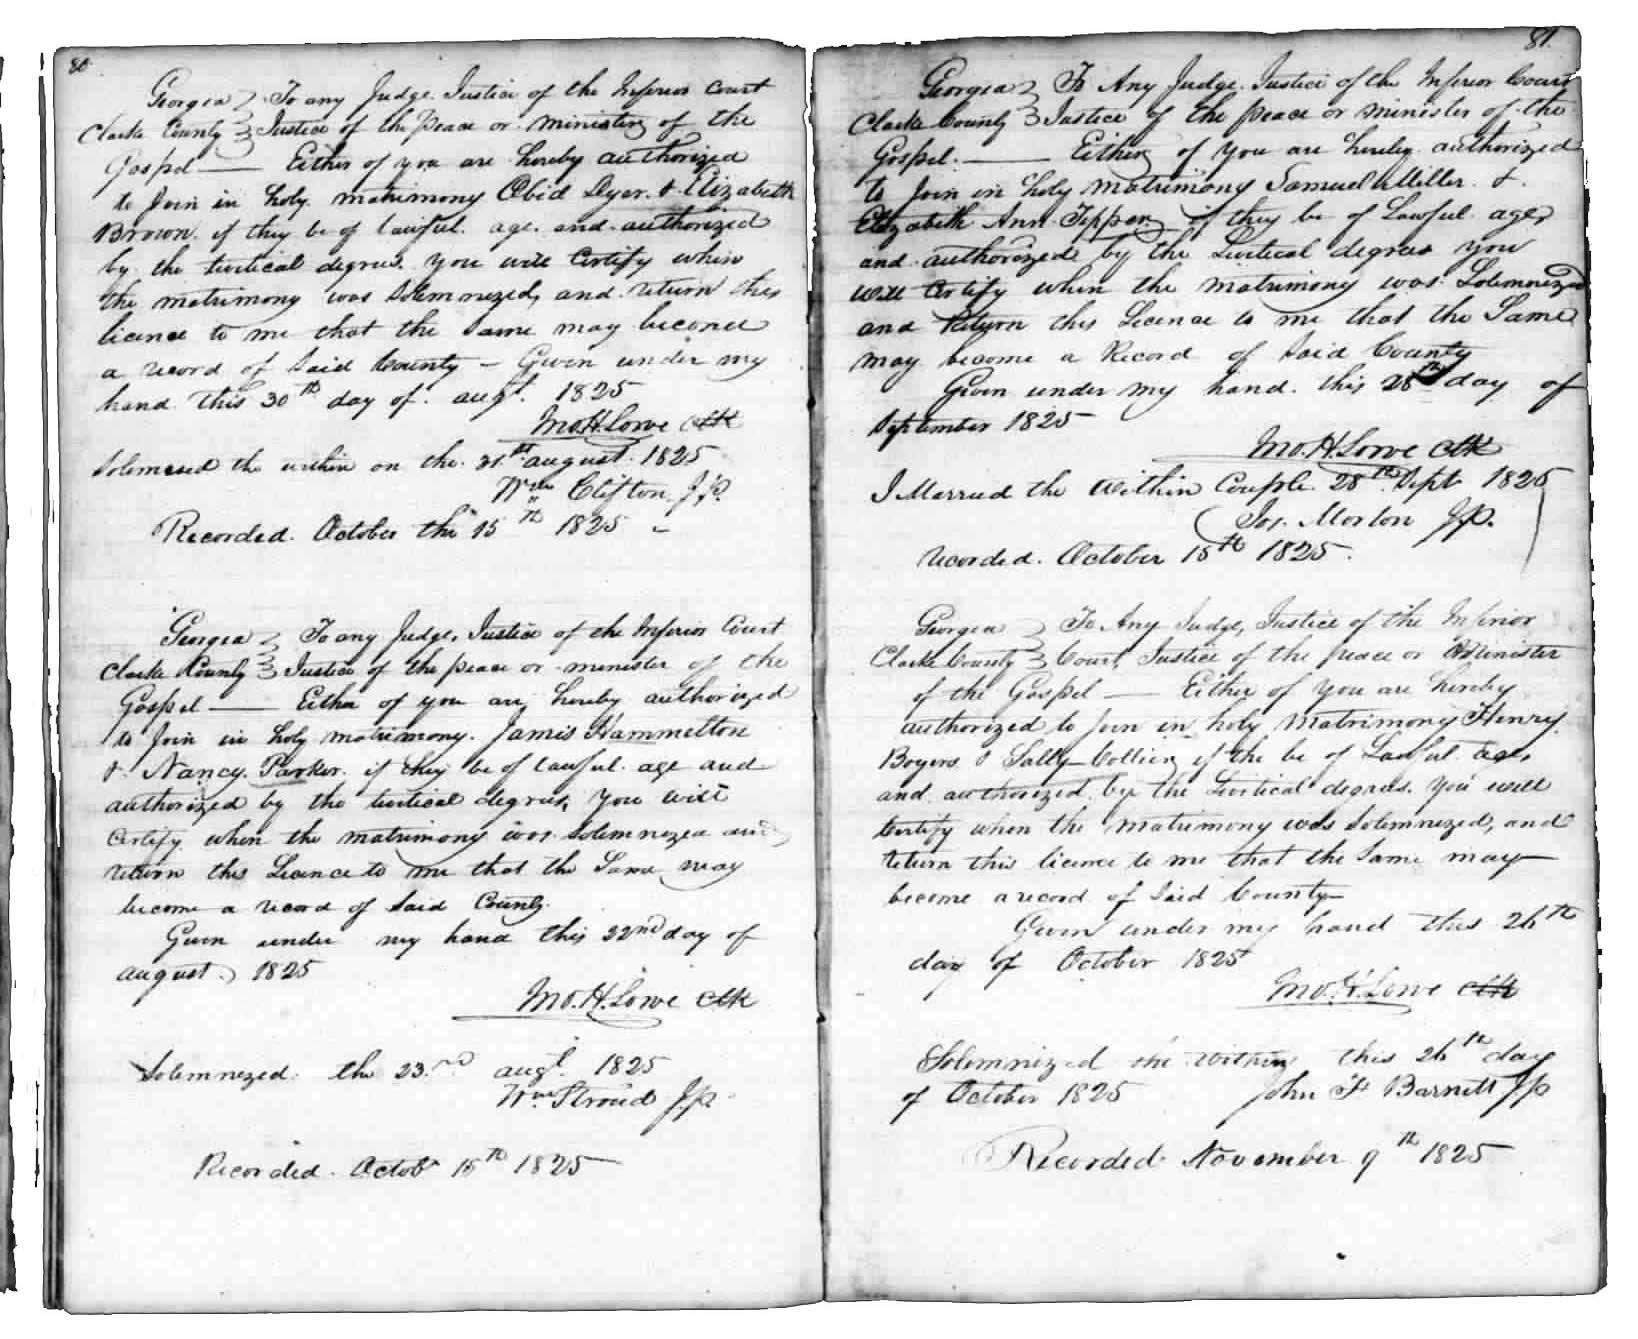 80
Georgia } To any Judge. Justice of the Inferior Court
Clarke County } Justice of the Peace or minister of the
Gospel — Either of you are hereby authorized
to Join in holy matrimony Obid Dyer. & Elizabeth
Brown. if they be of lawful age. and authorized
by the Livitical degrees. you will Certify when
the matrimony was Solemnezed, and return this
licence to me that the Same may become
a record of Said County – Given under my
hand this 30th day of. augt. 1825
Jno. H. Lowe Clk
Solemesed the within on the 31st august 1825
Wm Clifton J.P.
Recorded. October the 15th 1825
Georgia } To any Judge, Justice of the Inferior Court
Clarke County } Justice of the peace or minister of the
Gospel — Either of you are hereby authorized
to Join in holy matrimony. James Hammelton
& Nancy. Parker. if they be of lawful age and
authorized by the livitical degrees, you will
Certify when the matrimony was Solemnezed and
return this Licence to me that the Same may
become a record of Said County.
Given under my hand this 22nd day of
august 1825
Jno. H. Lowe Clk
Solemnezed. the 23rd augt. 1825
Wm Stroud J.P.
Recorded. Octob 15th 1825
81.
Georgia } To Any Judge. Justice of the Inferior Court
Clarke County } Justice of the peace or minister of the
Gospel. — Either of you are hereby authorized
to Join in holy matrimony Samuel Miller. &
Elizabeth Ann Tipper if they be of Lawful age,
and authorized by the Livitical degrees you
will Certify when the matrimony was Solemnized
and Return this Licence to me that the Same
may become a Record of Said County
Given under my hand. this 28th day of
September 1825
Jno. H. Lowe Clk
I Married the within Couple 28th Sept 1825
Jos. Morton J.P.
recorded. October 15th 1825.
Georgia } To Any Judge, Justice of the Inferior
Clarke County } Court, Justice of the peace or Minister
of the Gospel — Either of you are hereby
authorized to Join in holy Matrimony Henry
Boyers & Sally Collier if the be of Lawful age,
and authorized by the Livitical degrees. You will
Certify when the Matrimony was Solemnized, and
return this licence to me that the Same may
become a record of Said County
Given under my hand this 26th
day of October 1825
Jno. H. Lowe Clk
Solemnized the within this 26th day
of October 1825 John F Barnett J.P.
Recorded November 9th 1825